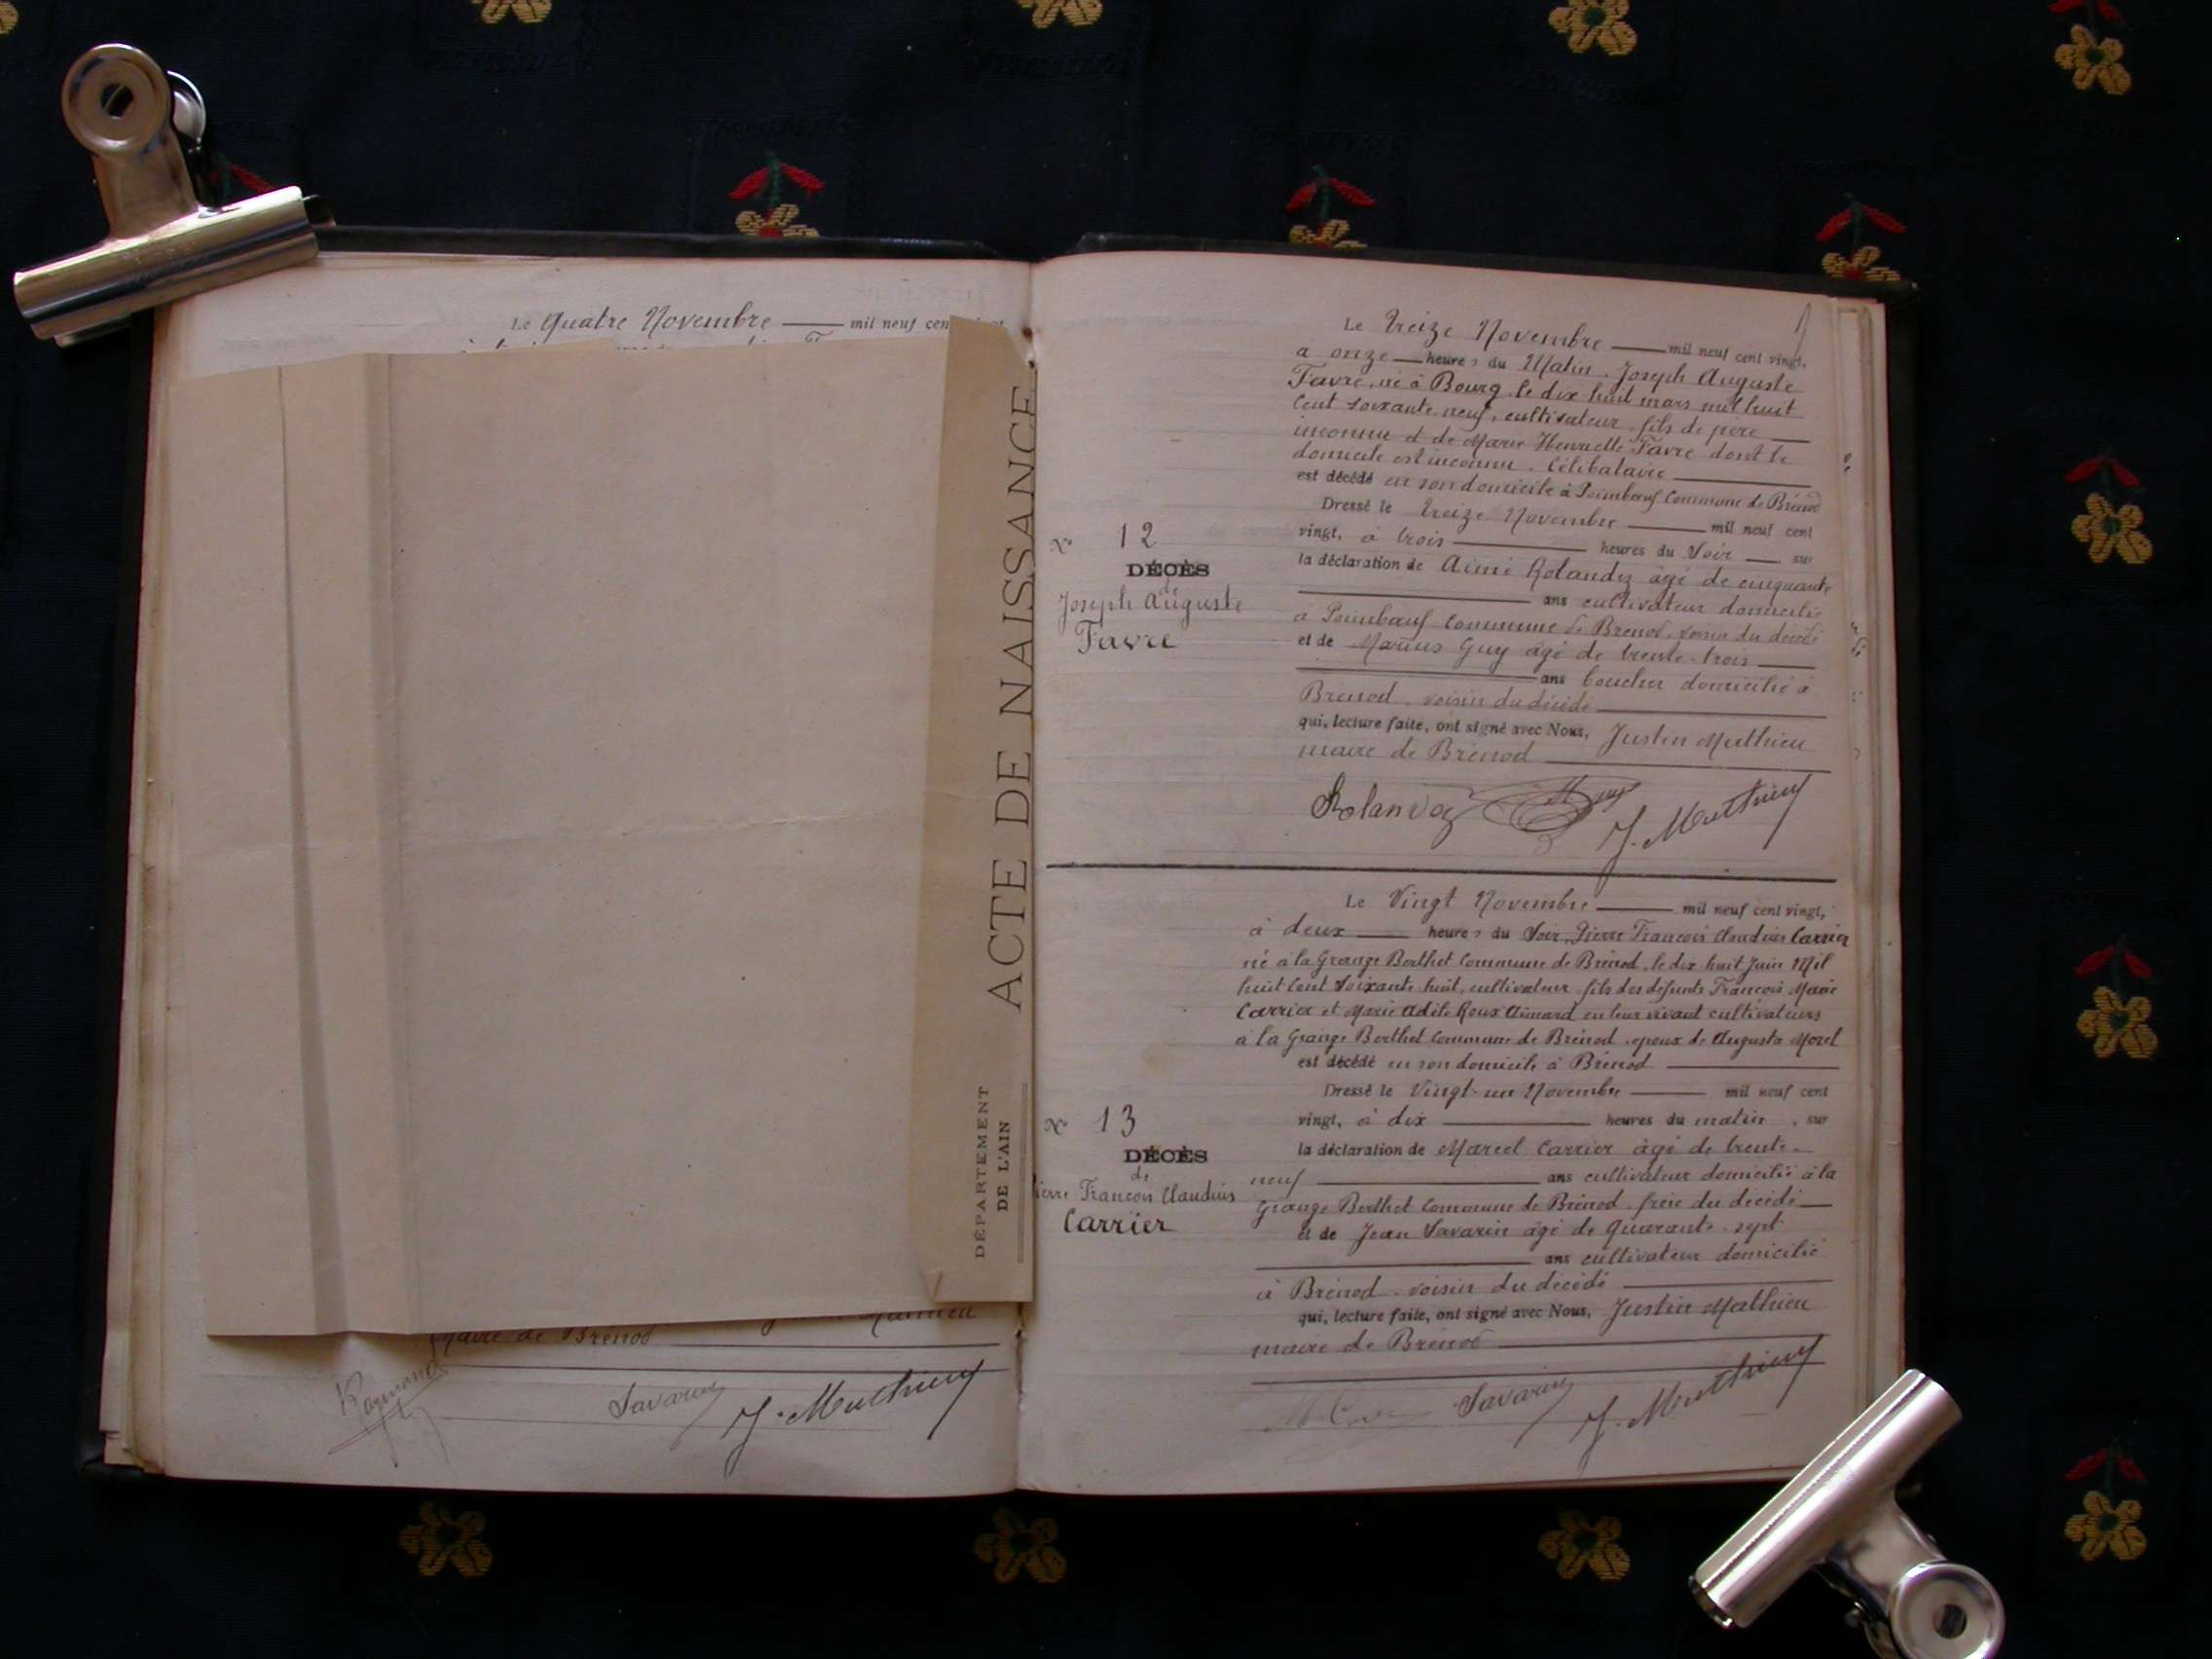 Le Quatre Novembre mil neuf cen
ACTE DE NAISSANCE
DÉPARTEMENT
DE L'AIN
de Brénod
Savarin J. Mathieu
Le Treize Novembre mil neuf cent vingt,
à onze heures du Matin, Joseph Auguste
Favre, né à Bourg, le dix huit mars mil huit
Cent soixante neuf, cultivateur, fils de père
inconnu et de Marie Henriette Favre dont le
domicile est inconnu. Célibataire
est décédé en son domicile à Poimbœuf Commune de Brénod
Dressé le Treize Novembre mil neuf cent
vingt, à trois heures du Soir, sur
la déclaration de Aimé Rolandez âgé de cinquante
ans cultivateur domicilié
à Poimbœuf Commune de Brénod, voisin du décédé
et de Marius Guy âgé de trente-trois
ans boucher domicilié à
Brénod, voisin du décédé
qui, lecture faite, ont signé avec Nous, Justin Mathieu
maire de Brénod
Rolandez J. Mathieu
N° 12
DÉCÈS
de
Joseph Auguste
Favre
Le Vingt Novembre mil neuf cent vingt,
à deux heures du Soir, Pierre François Claudius Carrier
né à la Grange Berthet Commune de Brénod, le dix huit Juin Mil
huit Cent Soixante huit, cultivateur, fils des défunts François Marie
Carrier et Marie Adèle Roux Aimard en leur vivant cultivateurs
à la Grange Berthet Commune de Brénod, époux de Augusta Morel
est décédé en son domicile à Brénod
Dressé le Vingt-un Novembre mil neuf cent
vingt, à dix heures du matin, sur
la déclaration de Marcel Carrier âgé de trente-
neuf ans cultivateur domicilié à la
Grange Berthet Commune de Brénod, frère du décédé
et de Jean Savarin âgé de Quarante-sept
ans cultivateur domicilié
à Brénod, voisin du décédé
qui, lecture faite, ont signé avec Nous, Justin Mathieu
maire de Brénod
Savarin J. Mathieu
N° 13
DÉCÈS
de
ierre François Claudius
Carrier